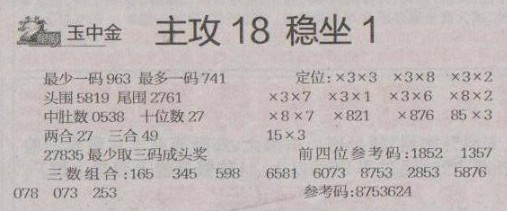 玉中金 主攻18 稳坐1
最少一码963 最多一码741
头围5819 尾围2761
中肚数0538 十位数27
两合27 三合49
27835最少取三码成头奖
三数组合:165 345 598
078 073 253
定位:×3×3 ×3×8 ×3×2
×3×7 ×3×1 ×3×6 ×8×2
×8×7 ×821 ×876 85×3
15×3
前四位参考码:1852 1357
6581 6073 8753 2853 5876
参考码:8753624